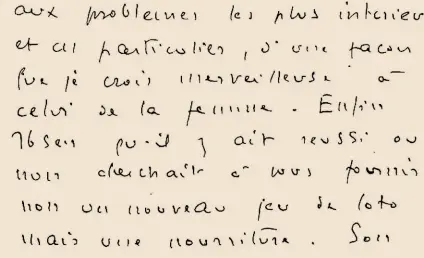 aux problèmes les plus intérieu
et en particulier, d'une façon
que je crois merveilleuse à
celui de la femme. Enfin
Ibsen qu'il y ait réussi ou
non cherchait à nous fournir
non un nouveau jeu de loto
mais une nourriture. Son